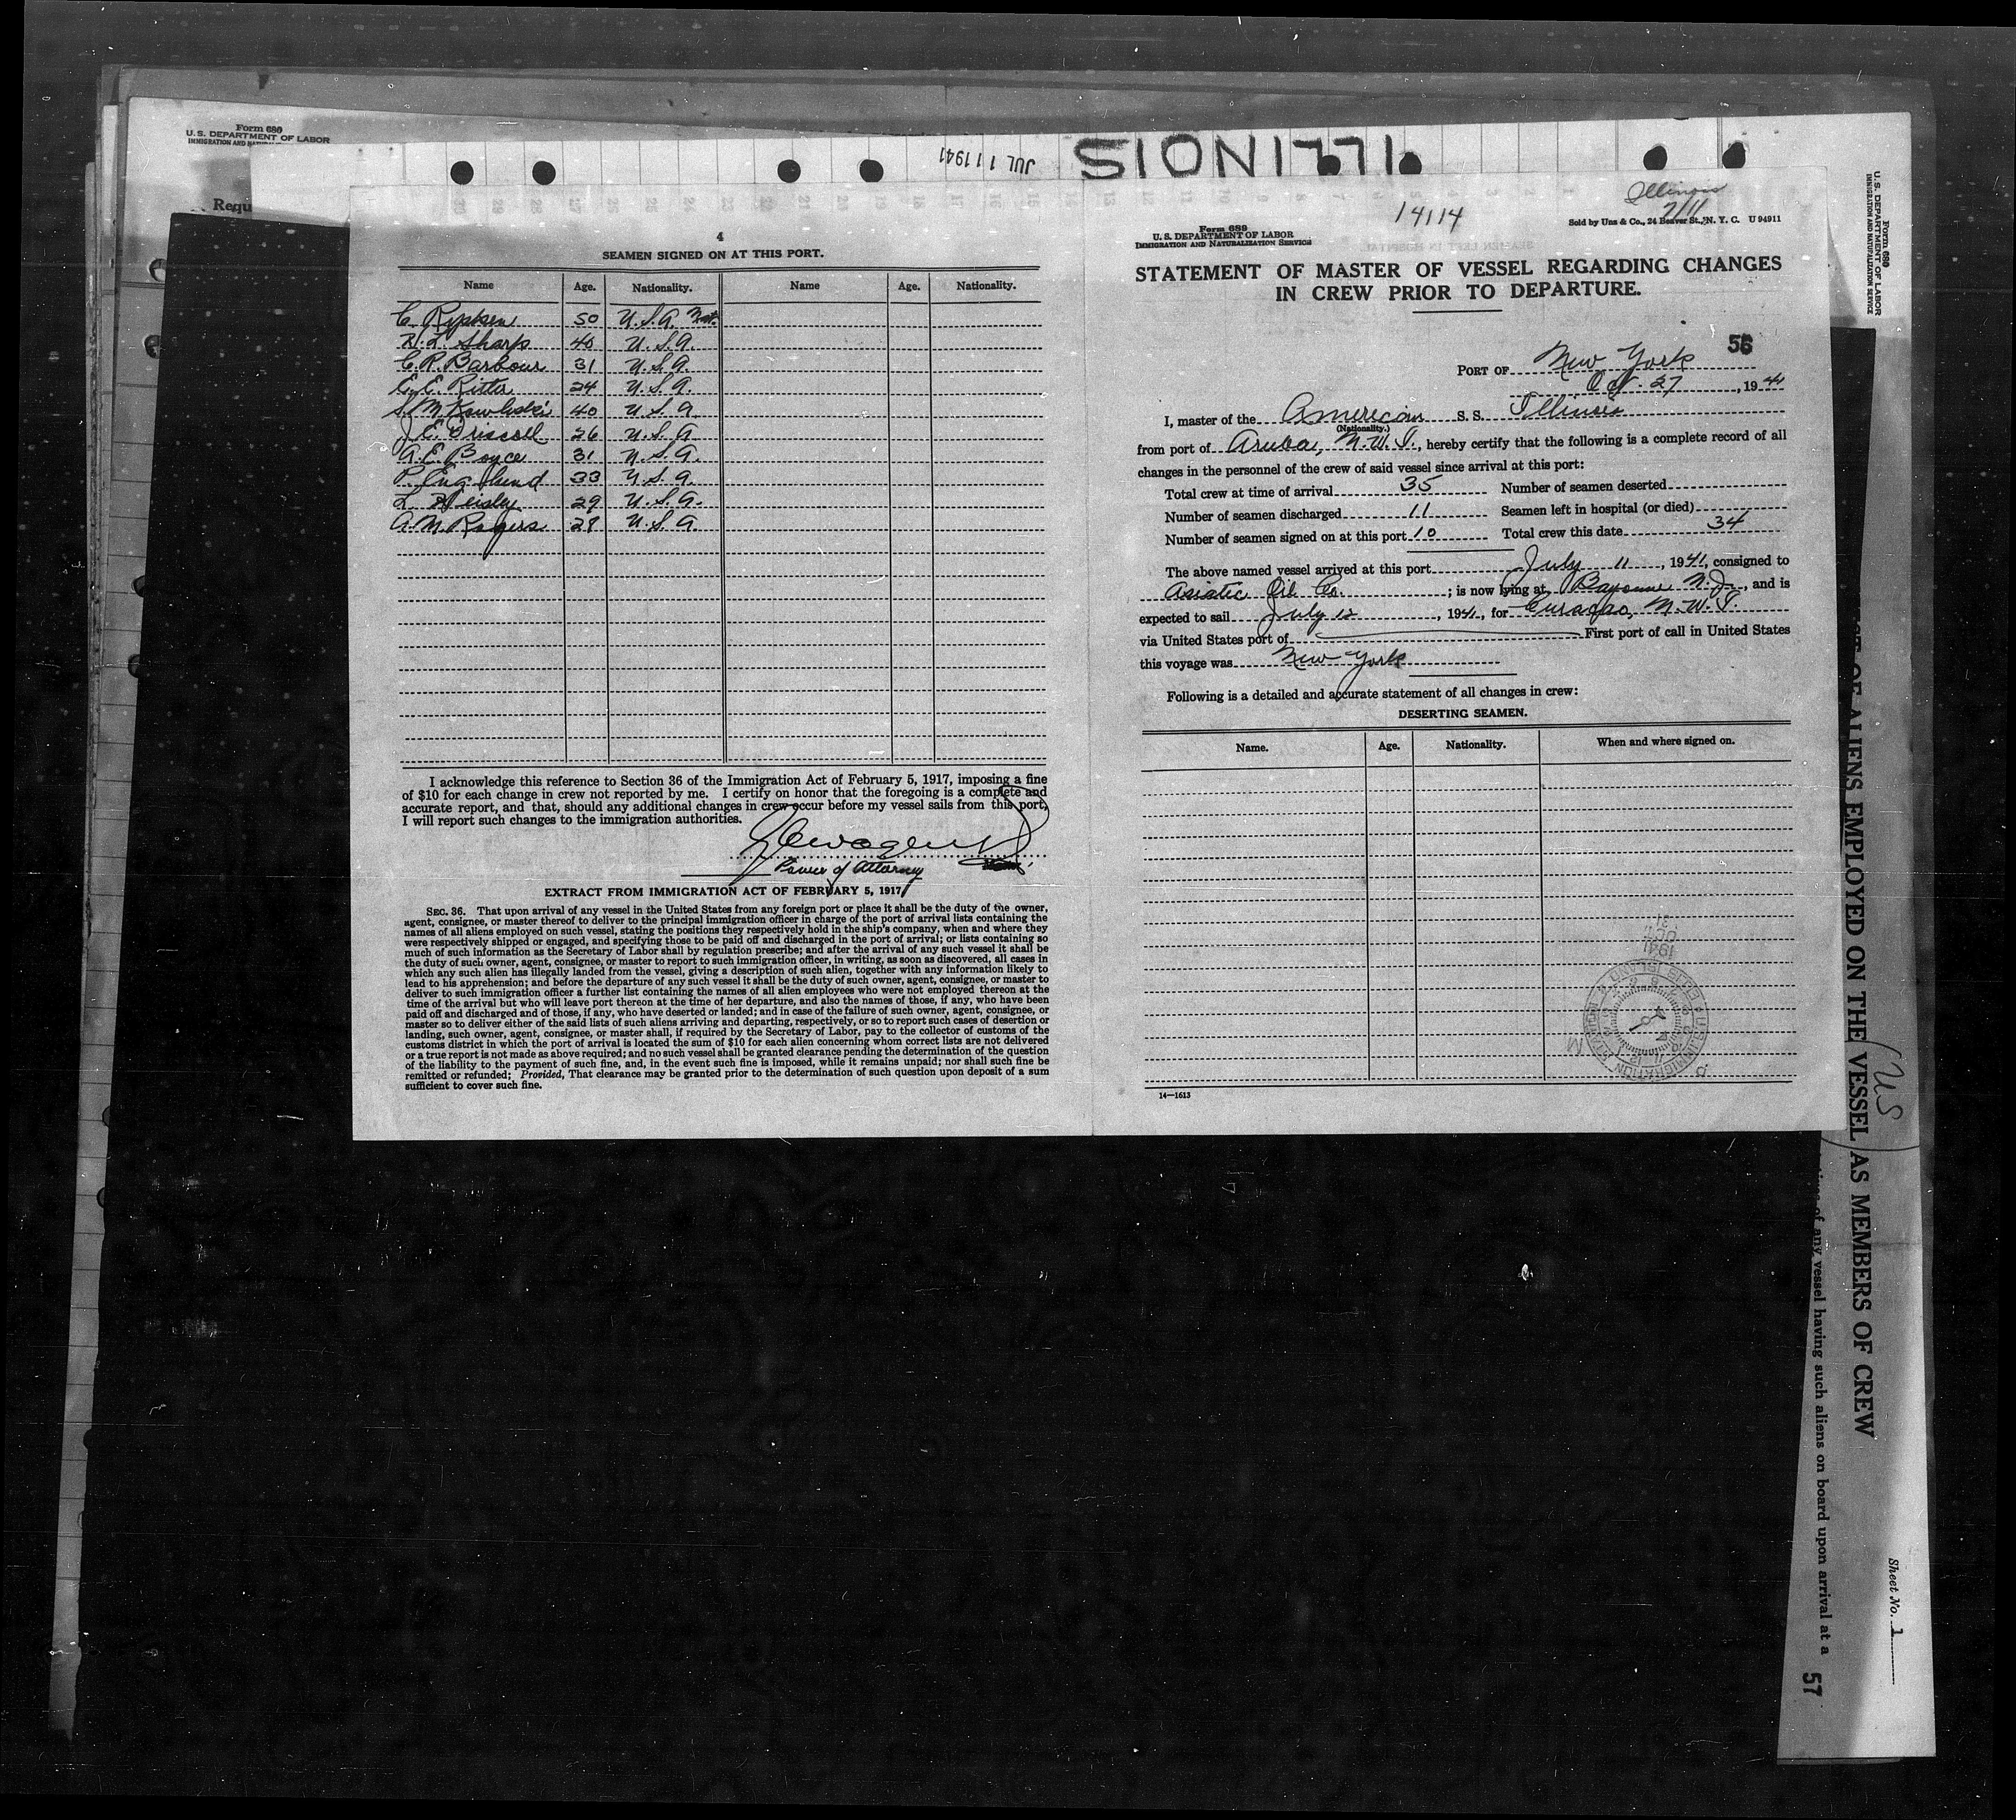 Form 680
U. S. DEPARTMENT OF LABOR
Requ
JUL 11 1941
ILLINOIS
4
SEAMEN SIGNED ON AT THIS PORT.
Name Age. Nationality. Name Age. Nationality.
C. Ripken 50 U.S.A. Nat.
H. L. Sharp 40 U.S.A.
C. R. Barbour 31 U.S.A.
E. E. Ritter 24 U.S.A.
S. M. Kowleski 40 U.S.A
J. E. Driscoll 26 U.S.A
A. E. Boyce 31 U.S.A.
P. Englund 33 U.S.A.
L. Heisley 29 U.S.A.
A. M. Rogers 28 U.S.A
I acknowledge this reference to Section 36 of the Immigration Act of February 5, 1917, imposing a fine
of $10 for each change in crew not reported by me. I certify on honor that the foregoing is a complete and
accurate report, and that, should any additional changes in crew occur before my vessel sails from this port,
I will report such changes to the immigration authorities.
Power of Attorney
EXTRACT FROM IMMIGRATION ACT OF FEBRUARY 5, 1917
SEC. 36. That upon arrival of any vessel in the United States from any foreign port or place it shall be the duty of the owner,
agent, consignee, or master thereof to deliver to the principal immigration officer in charge of the port of arrival lists containing the
names of all aliens employed on such vessel, stating the positions they respectively hold in the ship's company, when and where they
were respectively shipped or engaged, and specifying those to be paid off and discharged in the port of arrival; or lists containing so
much of such information as the Secretary of Labor shall by regulation prescribe; and after the arrival of any such vessel it shall be
the duty of such owner, agent, consignee, or master to report to such immigration officer, in writing, as soon as discovered, all cases in
which any such alien has illegally landed from the vessel, giving a description of such alien, together with any information likely to
lead to his apprehension; and before the departure of any such vessel it shall be the duty of such owner, agent, consignee, or master to
deliver to such immigration officer a further list containing the names of all alien employees who were not employed thereon at the
time of the arrival but who will leave port thereon at the time of her departure, and also the names of those, if any, who have been
paid off and discharged and of those, if any, who have deserted or landed; and in case of the failure of such owner, agent, consignee, or
master so to deliver either of the said lists of such aliens arriving and departing, respectively, or so to report such cases of desertion or
landing, such owner, agent, consignee, or master shall, if required by the Secretary of Labor, pay to the collector of customs of the
customs district in which the port of arrival is located the sum of $10 for each alien concerning whom correct lists are not delivered
or a true report is not made as above required; and no such vessel shall be granted clearance pending the determination of the question
of the liability to the payment of such fine, and, in the event such fine is imposed, while it remains unpaid; nor shall such fine be
remitted or refunded; Provided, That clearance may be granted prior to the determination of such question upon deposit of a sum
sufficient to cover such fine.
14114
Illinois
7/11
Sold by Unz & Co., 24 Beaver St., N. Y. C. U 94911
Form 689
U. S. DEPARTMENT OF LABOR
IMMIGRATION AND NATURALIZATION SERVICE
STATEMENT OF MASTER OF VESSEL REGARDING CHANGES
IN CREW PRIOR TO DEPARTURE.
56
PORT OF New York
Oct. 27, 1941
I, master of the American S. S. Illinois
(Nationality.)
from port of Aruba, N.W.I., hereby certify that the following is a complete record of all
changes in the personnel of the crew of said vessel since arrival at this port:
Total crew at time of arrival 35 Number of seamen deserted
Number of seamen discharged 11 Seamen left in hospital (or died)
Number of seamen signed on at this port 10 Total crew this date 34
The above named vessel arrived at this port July 11, 1941, consigned to
Asiatic Oil Co. ; is now lying at Bayonne N.J., and is
expected to sail July 12, 1941, for Curaçao, N.W.I.
via United States port of First port of call in United States
this voyage was New York
Following is a detailed and accurate statement of all changes in crew:
DESERTING SEAMEN.
Name. Age. Nationality. When and where signed on.
14—1613
Form 680
U. S. DEPARTMENT OF LABOR
IMMIGRATION AND NATURALIZATION SERVICE
OF ALIENS EMPLOYED ON THE VESSEL AS MEMBERS OF CREW
(U.S)
of any vessel having such aliens on board upon arrival at a
Sheet No. 1
57